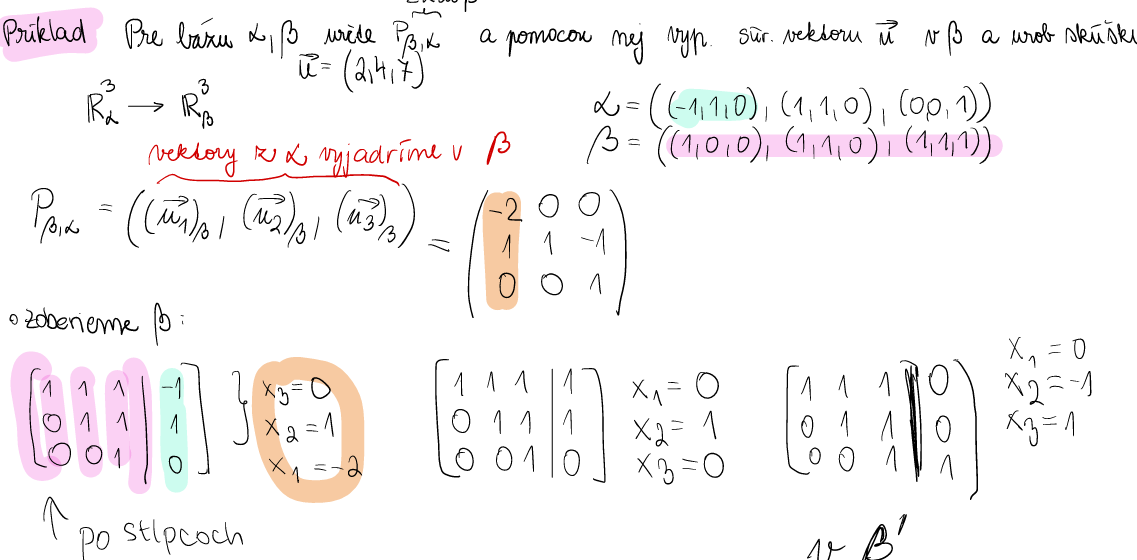 Príklad Pre bázu α, β určte P_β,α a pomocou nej vyp. súr. vektoru u⃗ v β a urob skúšku
u⃗ = (2,4,7)
R³_α → R³_β
α = ((-1,1,0), (1,1,0), (0,0,1))
β = ((1,0,0), (1,1,0), (1,1,1))
vektory z α vyjadríme v β
P_β,α = ((u⃗1)_β, (u⃗2)_β, (u⃗3)_β) =
-2 0 0
1 1 -1
0 0 1
zoberieme β:
1 1 1 | -1
0 1 1 | 1
0 0 1 | 0
x3 = 0
x2 = 1
x1 = -2
1 1 1 | 1
0 1 1 | 1
0 0 1 | 0
x1 = 0
x2 = 1
x3 = 0
1 1 1 | 0
0 1 1 | 0
0 0 1 | 1
x1 = 0
x2 = -1
x3 = 1
↑ po stlpcoch
v β'